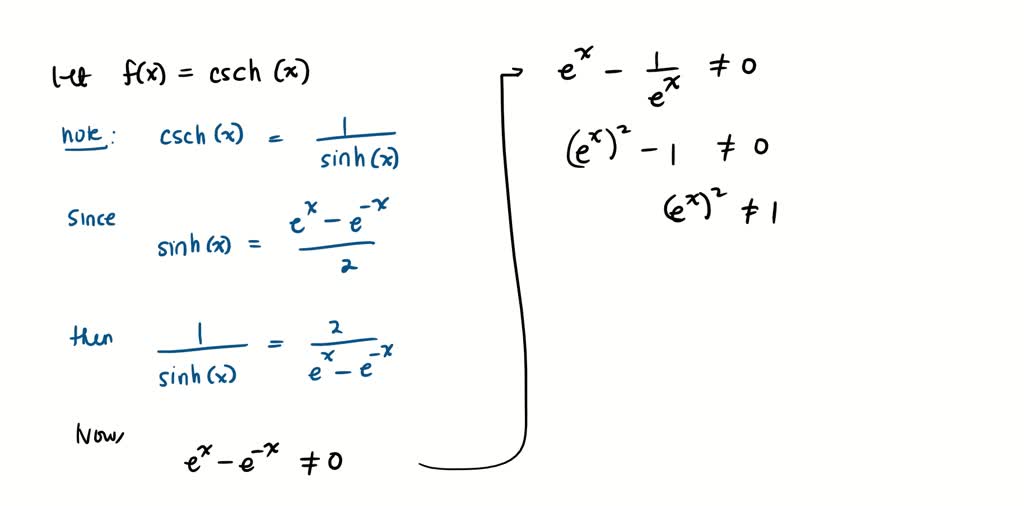 Let f(x) = csch (x)
note: csch (x) = 1/sinh (x)
Since sinh (x) = (e^x − e^−x)/2
then 1/sinh (x) = 2/(e^x − e^−x)
Now, e^x − e^−x ≠ 0
e^x − 1/e^x ≠ 0
(e^x)^2 − 1 ≠ 0
(e^x)^2 ≠ 1